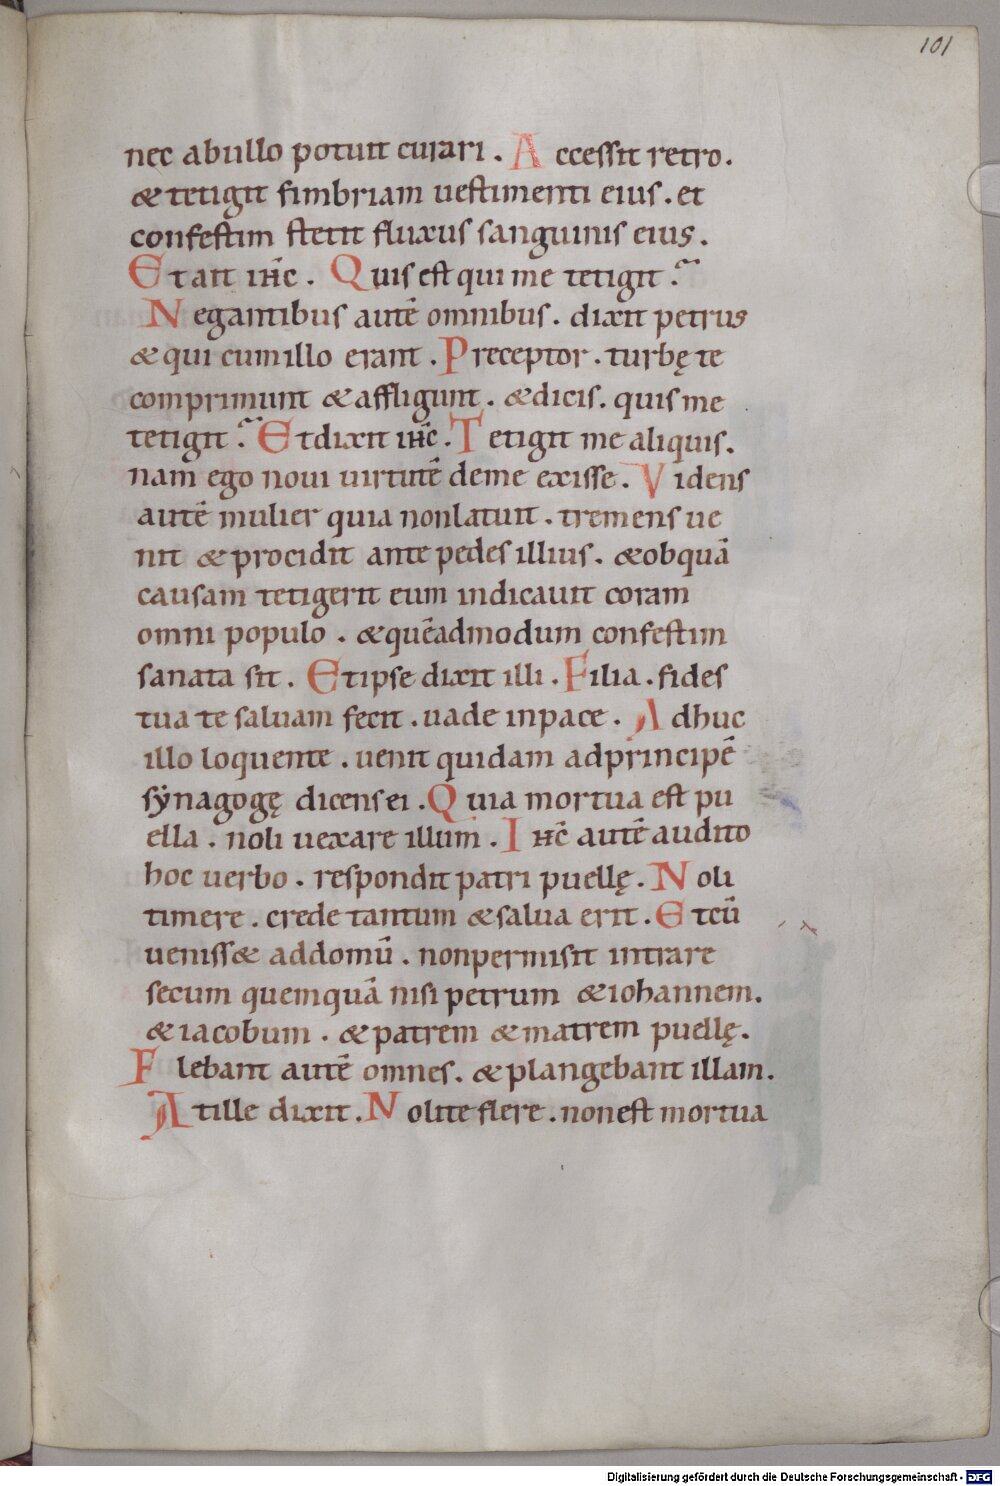 101
nec abullo potuit curari . Accessit retro.
& tetigit fimbriam uestimenti eius . et
confestim stetit fluxus sanguinis eius .
Et ait ihc̄ . Quis est qui me tetigit ?
Negantibus autē omnibus . dixit petrus
& qui cum illo erant . Preceptor . turbę te
comprimunt & affligunt . & dicis . quis me
tetigit ? Et dixit ihc̄ . Tetigit me aliquis .
nam ego noui uirtutē deme exisse . Videns
autē mulier quia nonlatuit . tremens ue
nit & procidit ante pedes illius . & obquā
causam tetigerit eum indicauit coram
omni populo . & quēadmodum confestim
sanata sit . Et ipse dixit illi . Filia . fides
tua te saluam fecit . uade inpace . Adhuc
illo loquente . uenit quidam adprincipē
sẏnagogę dicens ei . Quia mortua est pu
ella . noli uexare illum . Ihc̄ autē audito
hoc uerbo . respondit patri puellę . Noli
timere . crede tantum & salua erit . Et cū
ueniss& addomū . nonpermisit intrare
secum quemquā nisi petrum & iohannem .
& iacobum . & patrem & matrem puellę .
Flebant autē omnes . & plangebant illam .
At ille dixit . Nolite flere . nonest mortua
Digitalisierung gefördert durch die Deutsche Forschungsgemeinschaft - DFG